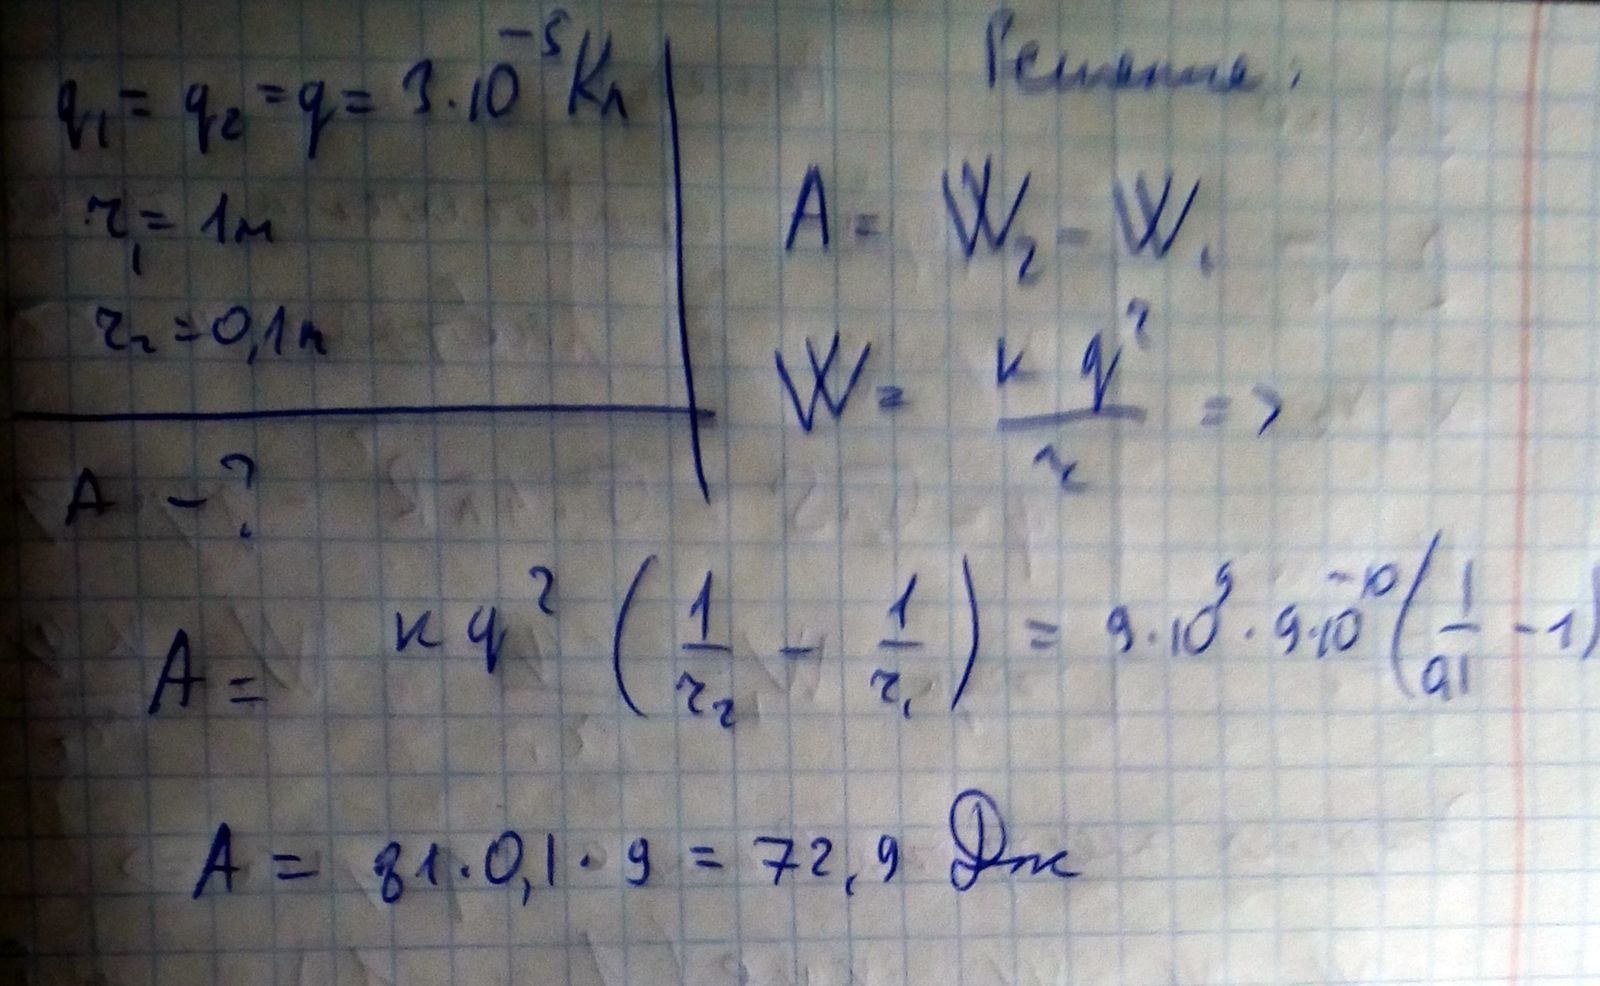 q₁ = q₂ = q = 3·10⁻⁵ Кл
r₁ = 1м
r₂ = 0,1м
A - ?
Решение:
A = W₂ - W₁
W = kq²/r =>
A = kq² (1/r₂ - 1/r₁) = 9·10⁹ · 9·10⁻¹⁰ (1/0,1 - 1)
A = 81·0,1·9 = 72,9 Дж